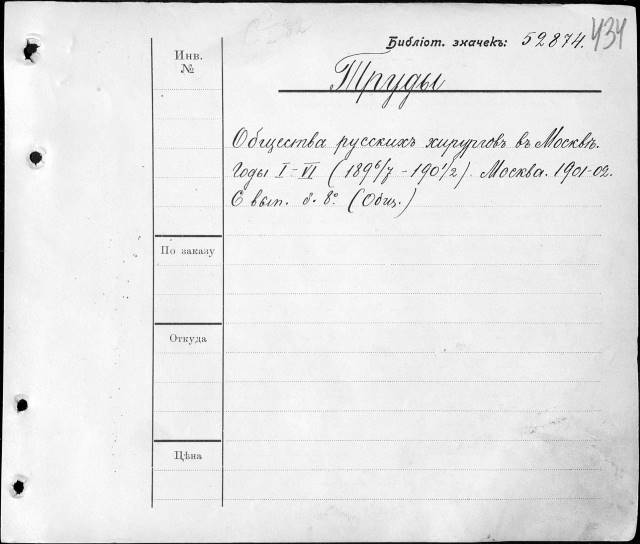 Библіот. значекъ: 52874. 434
Инв.
№
Труды
Общества русскихъ хирурговъ въ Москвѣ.
Годы I–VI (189 6/7 – 190 1/2). Москва. 1901-02.
6 вып. б. 8° (Общ.)
По заказу
Откуда
Цѣна